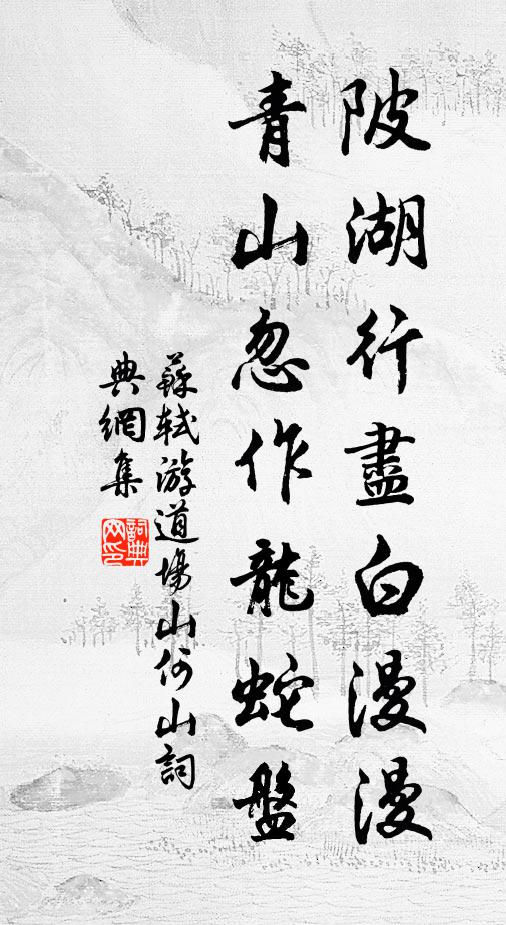 陂湖行盡白漫漫
青山忽作龍蛇盤
蘇軾游道場山何山詞
典網集
詞典网印